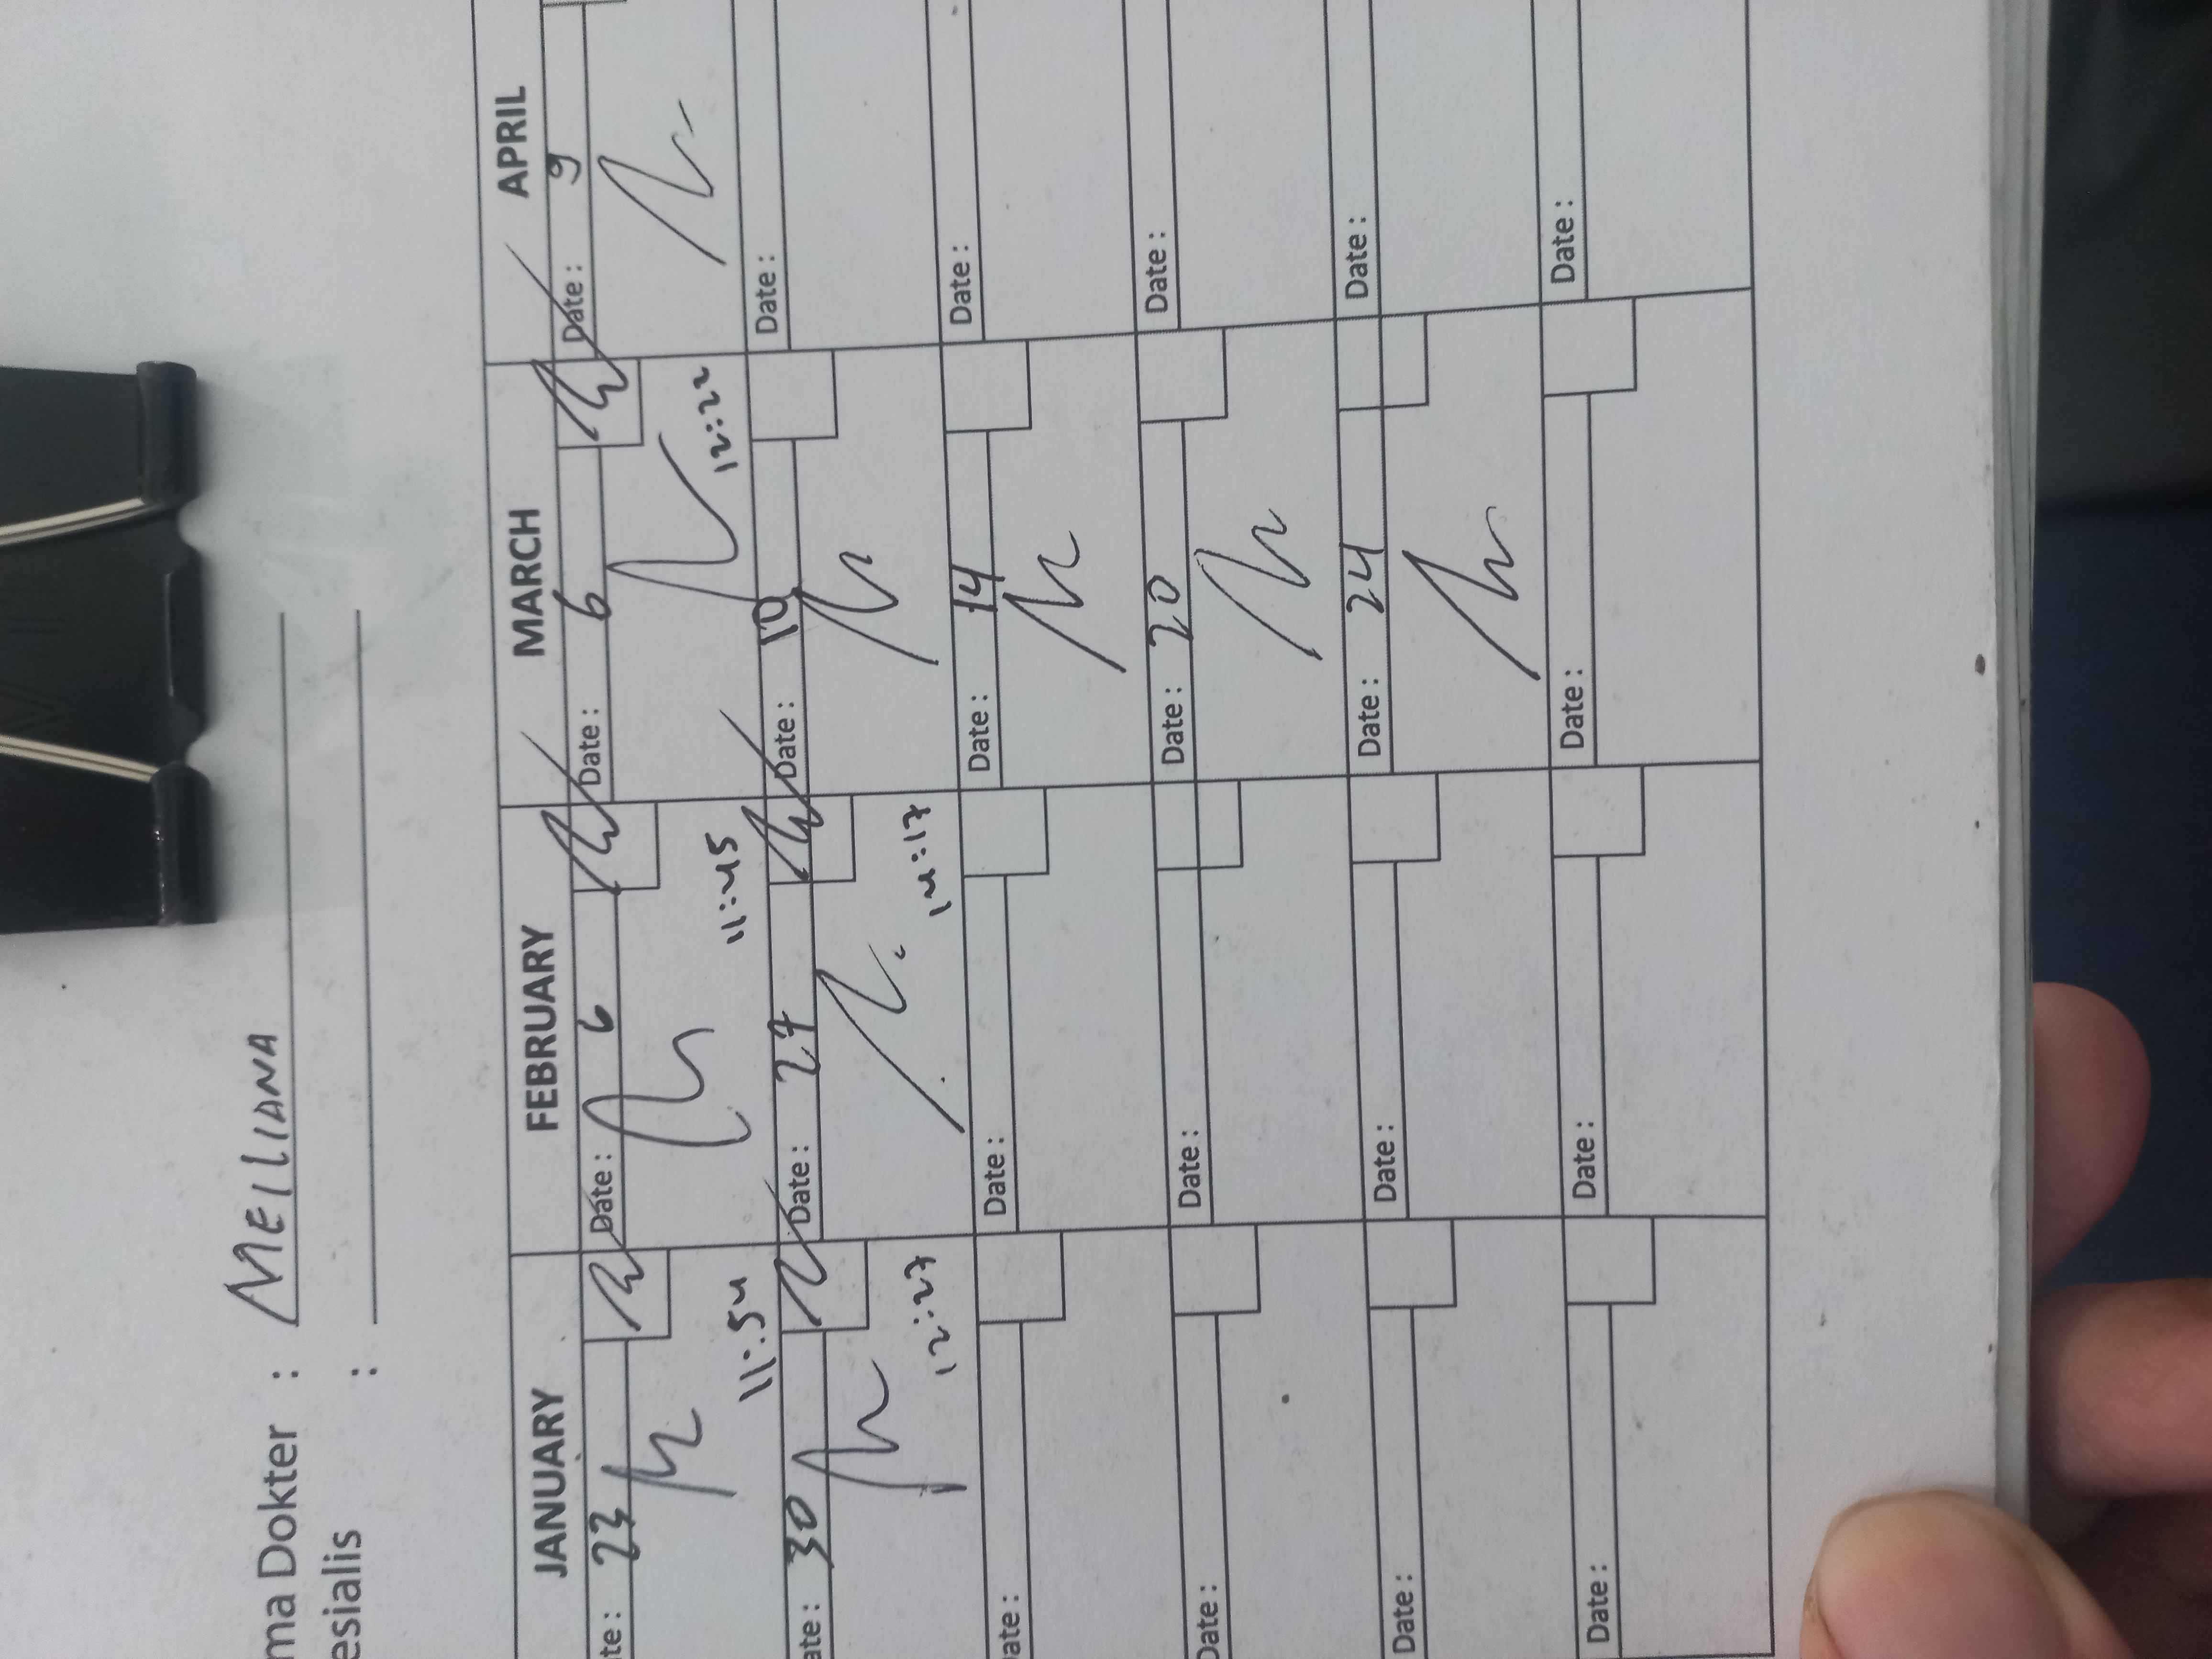 ma Dokter : MEILIANA
esialis :
JANUARY FEBRUARY MARCH APRIL
te : 23 Date : 6 Date : 6 Date : 9
11:54 11:45 12:22
ate : 30 Date : 27 Date : 10 Date :
12:27 14:17
ate : Date : Date : 14 Date :
Date : Date : Date : 20 Date :
Date : Date : Date : 24 Date :
Date : Date : Date : Date :